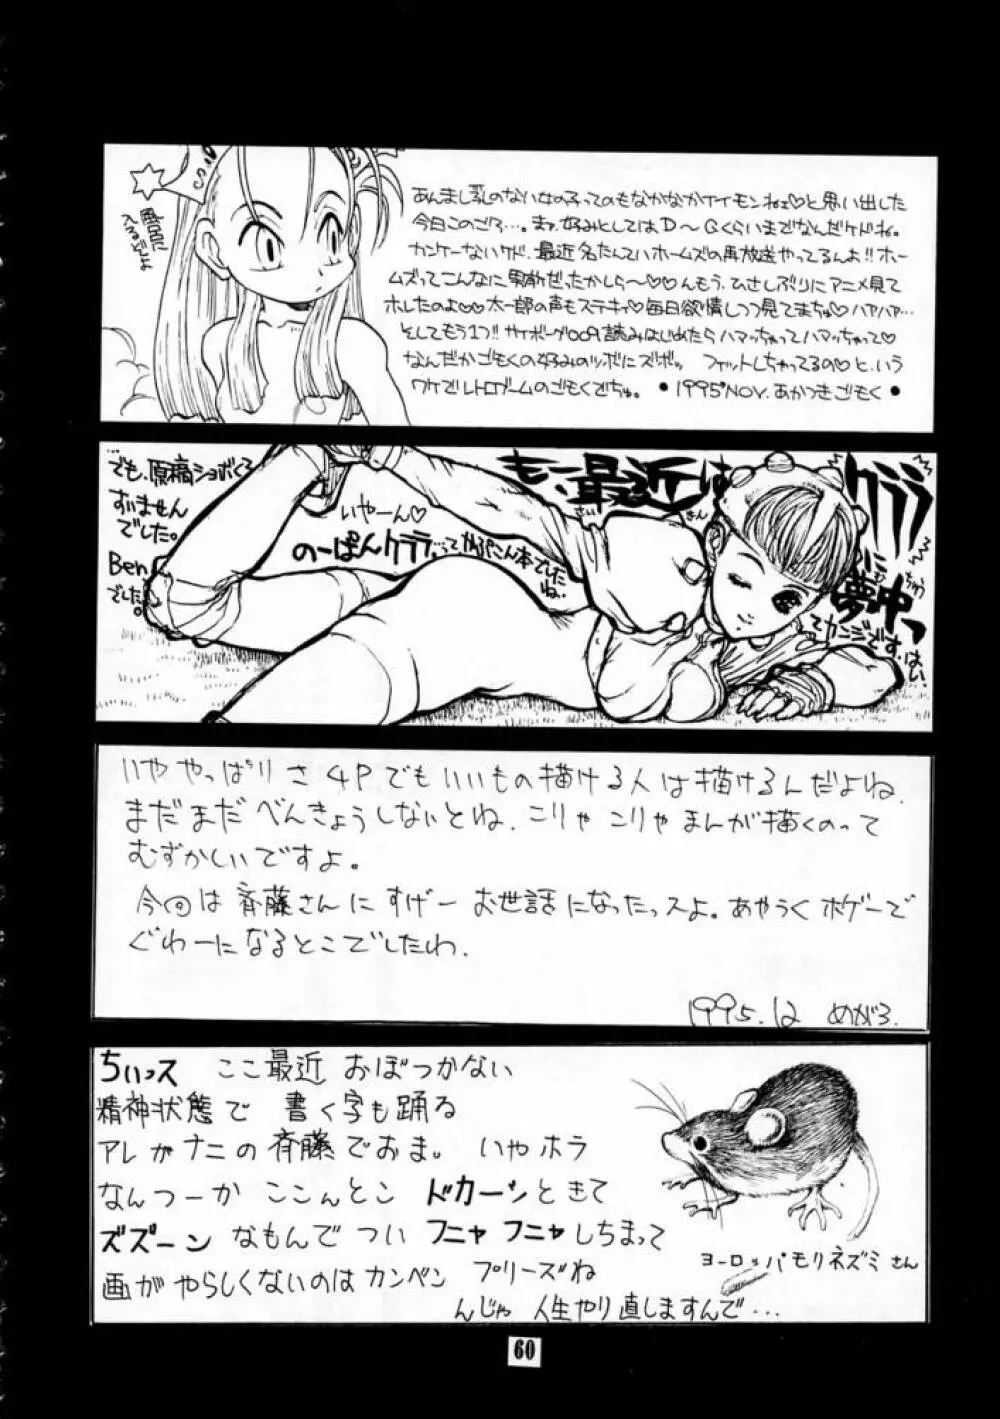 あんまし乳のない女の子ってのもなかなかイイモンねェ♡と思い出した
今日このごろ…。まァ、好みとしてはD〜Gくらいまでなんだケドね。
カンケーないケド、最近名たんていホームズの再放送やってるんよ!!ホー
ムズってこんなに男前だったかしら〜♡♡んもう、ひさしぶりにアニメ見て
ホレたのよ♡♡太一郎の声もステキィ♡毎日欲情しつつ見てまちゅ♡ハァハァ…
そしてもう1つ!!サイボーグ009読みはじめたらハマッちゃってハマッちゃって♡
なんだかごもくの好みのツボにズボッ フィットしちゃってるの♡と、いう
ワケでレトロゲームのごもくでちゅ。 ●1995°NOV. あかつきごもく●
でも、原稿ショボくて
すいません
でした。
Ben
でした。
いやーん♡
のーぱんクララ…ってかぷこん本でした
ね..
もー、最近は
さい きん
クララ
に
夢中っ
むちゅう
てカンジです。はい。
いややっぱりさ 4Pでもいいもの描ける人は描けるんだよね.
まだまだべんきょうしないとね. こりゃこりゃまんが描くのって
むずかしいですよ。
今回は斉藤さんにすげーお世話になったっスよ。あやうくホゲーで
ぐわーになるとこでしたわ.
1995.12 めがろ.
ちぃっス ここ最近 おぼつかない
精神状態で 書く字も踊る
アレがナニの斉藤でおま。 いやホラ
なんつーか ここんとこ ドカーンときて
ズズーン なもんで つい フニャフニャしちまって
画がやらしくないのはカンベン プリーズね
んじゃ 人生やり直しますんで…
ヨーロッパモリネズミさん
60